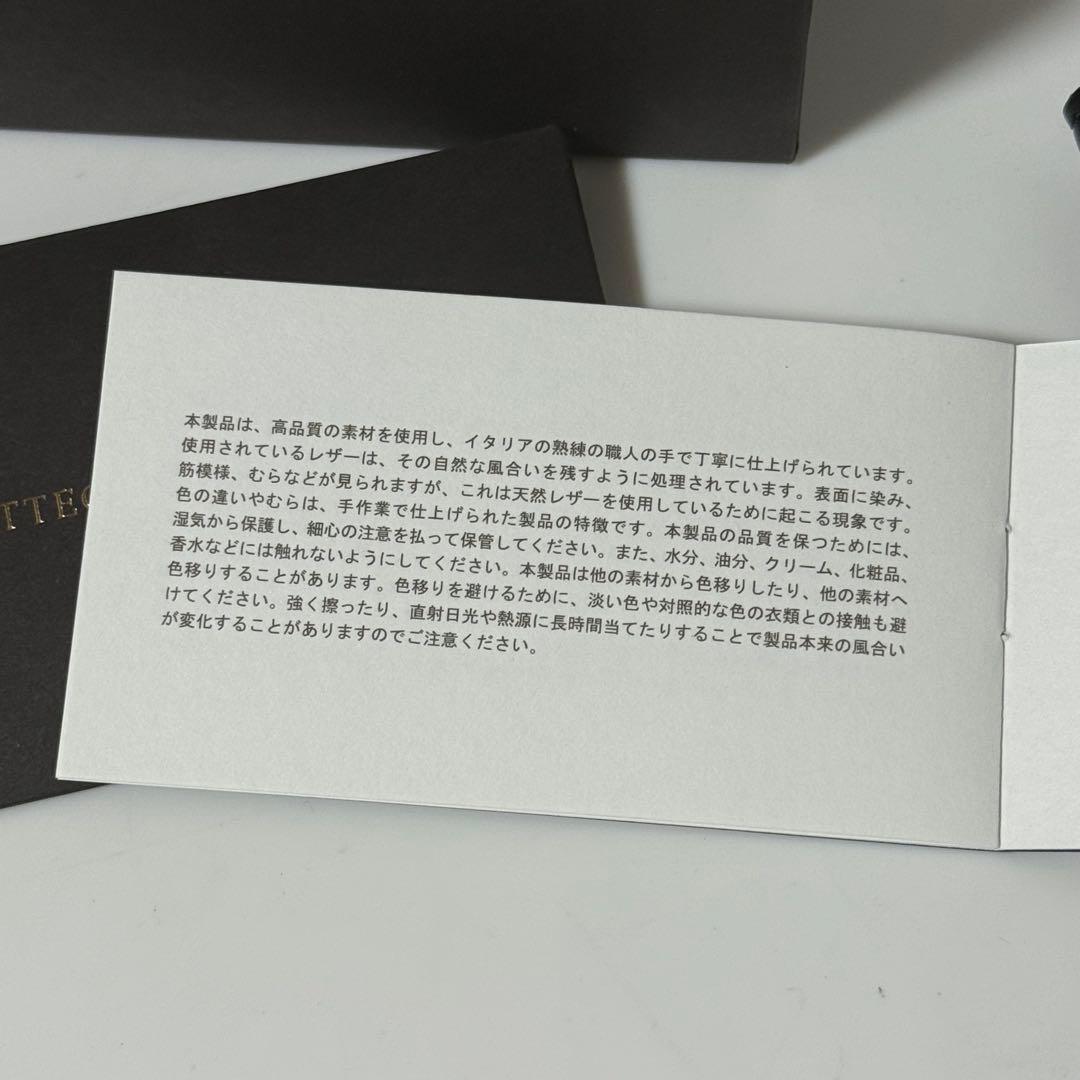 本製品は、高品質の素材を使用し、イタリアの熟練の職人の手で丁寧に仕上げられています。
使用されているレザーは、その自然な風合いを残すように処理されています。表面に染み、
筋模様、むらなどが見られますが、これは天然レザーを使用しているために起こる現象です。
色の違いやむらは、手作業で仕上げられた製品の特徴です。本製品の品質を保つためには、
湿気から保護し、細心の注意を払って保管してください。また、水分、油分、クリーム、化粧品、
香水などには触れないようにしてください。本製品は他の素材から色移りしたり、他の素材へ
色移りすることがあります。色移りを避けるために、淡い色や対照的な色の衣類との接触も避
けてください。強く擦ったり、直射日光や熱源に長時間当てたりすることで製品本来の風合い
が変化することがありますのでご注意ください。
TTEG